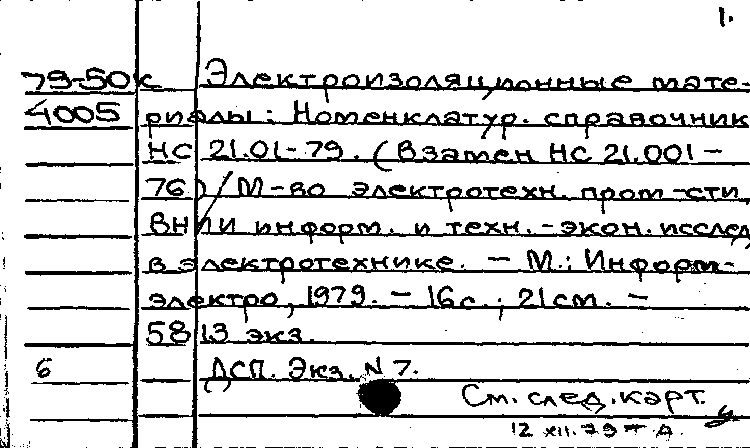 1.
79-50к Электроизоляционные мате-
4005 риалы: Номенклатур. справочник
НС 21.01-79. (Взамен НС 21.001-
76) / М-во электротехн. пром-сти,
ВНИИ информ. и техн.-экон. исслед.
в электротехнике. - М.: Информ-
электро, 1979. - 16с.; 21см. -
5813 экз.
6 ДСП. Экз. N 7.
См. след. карт.
12 XII.79